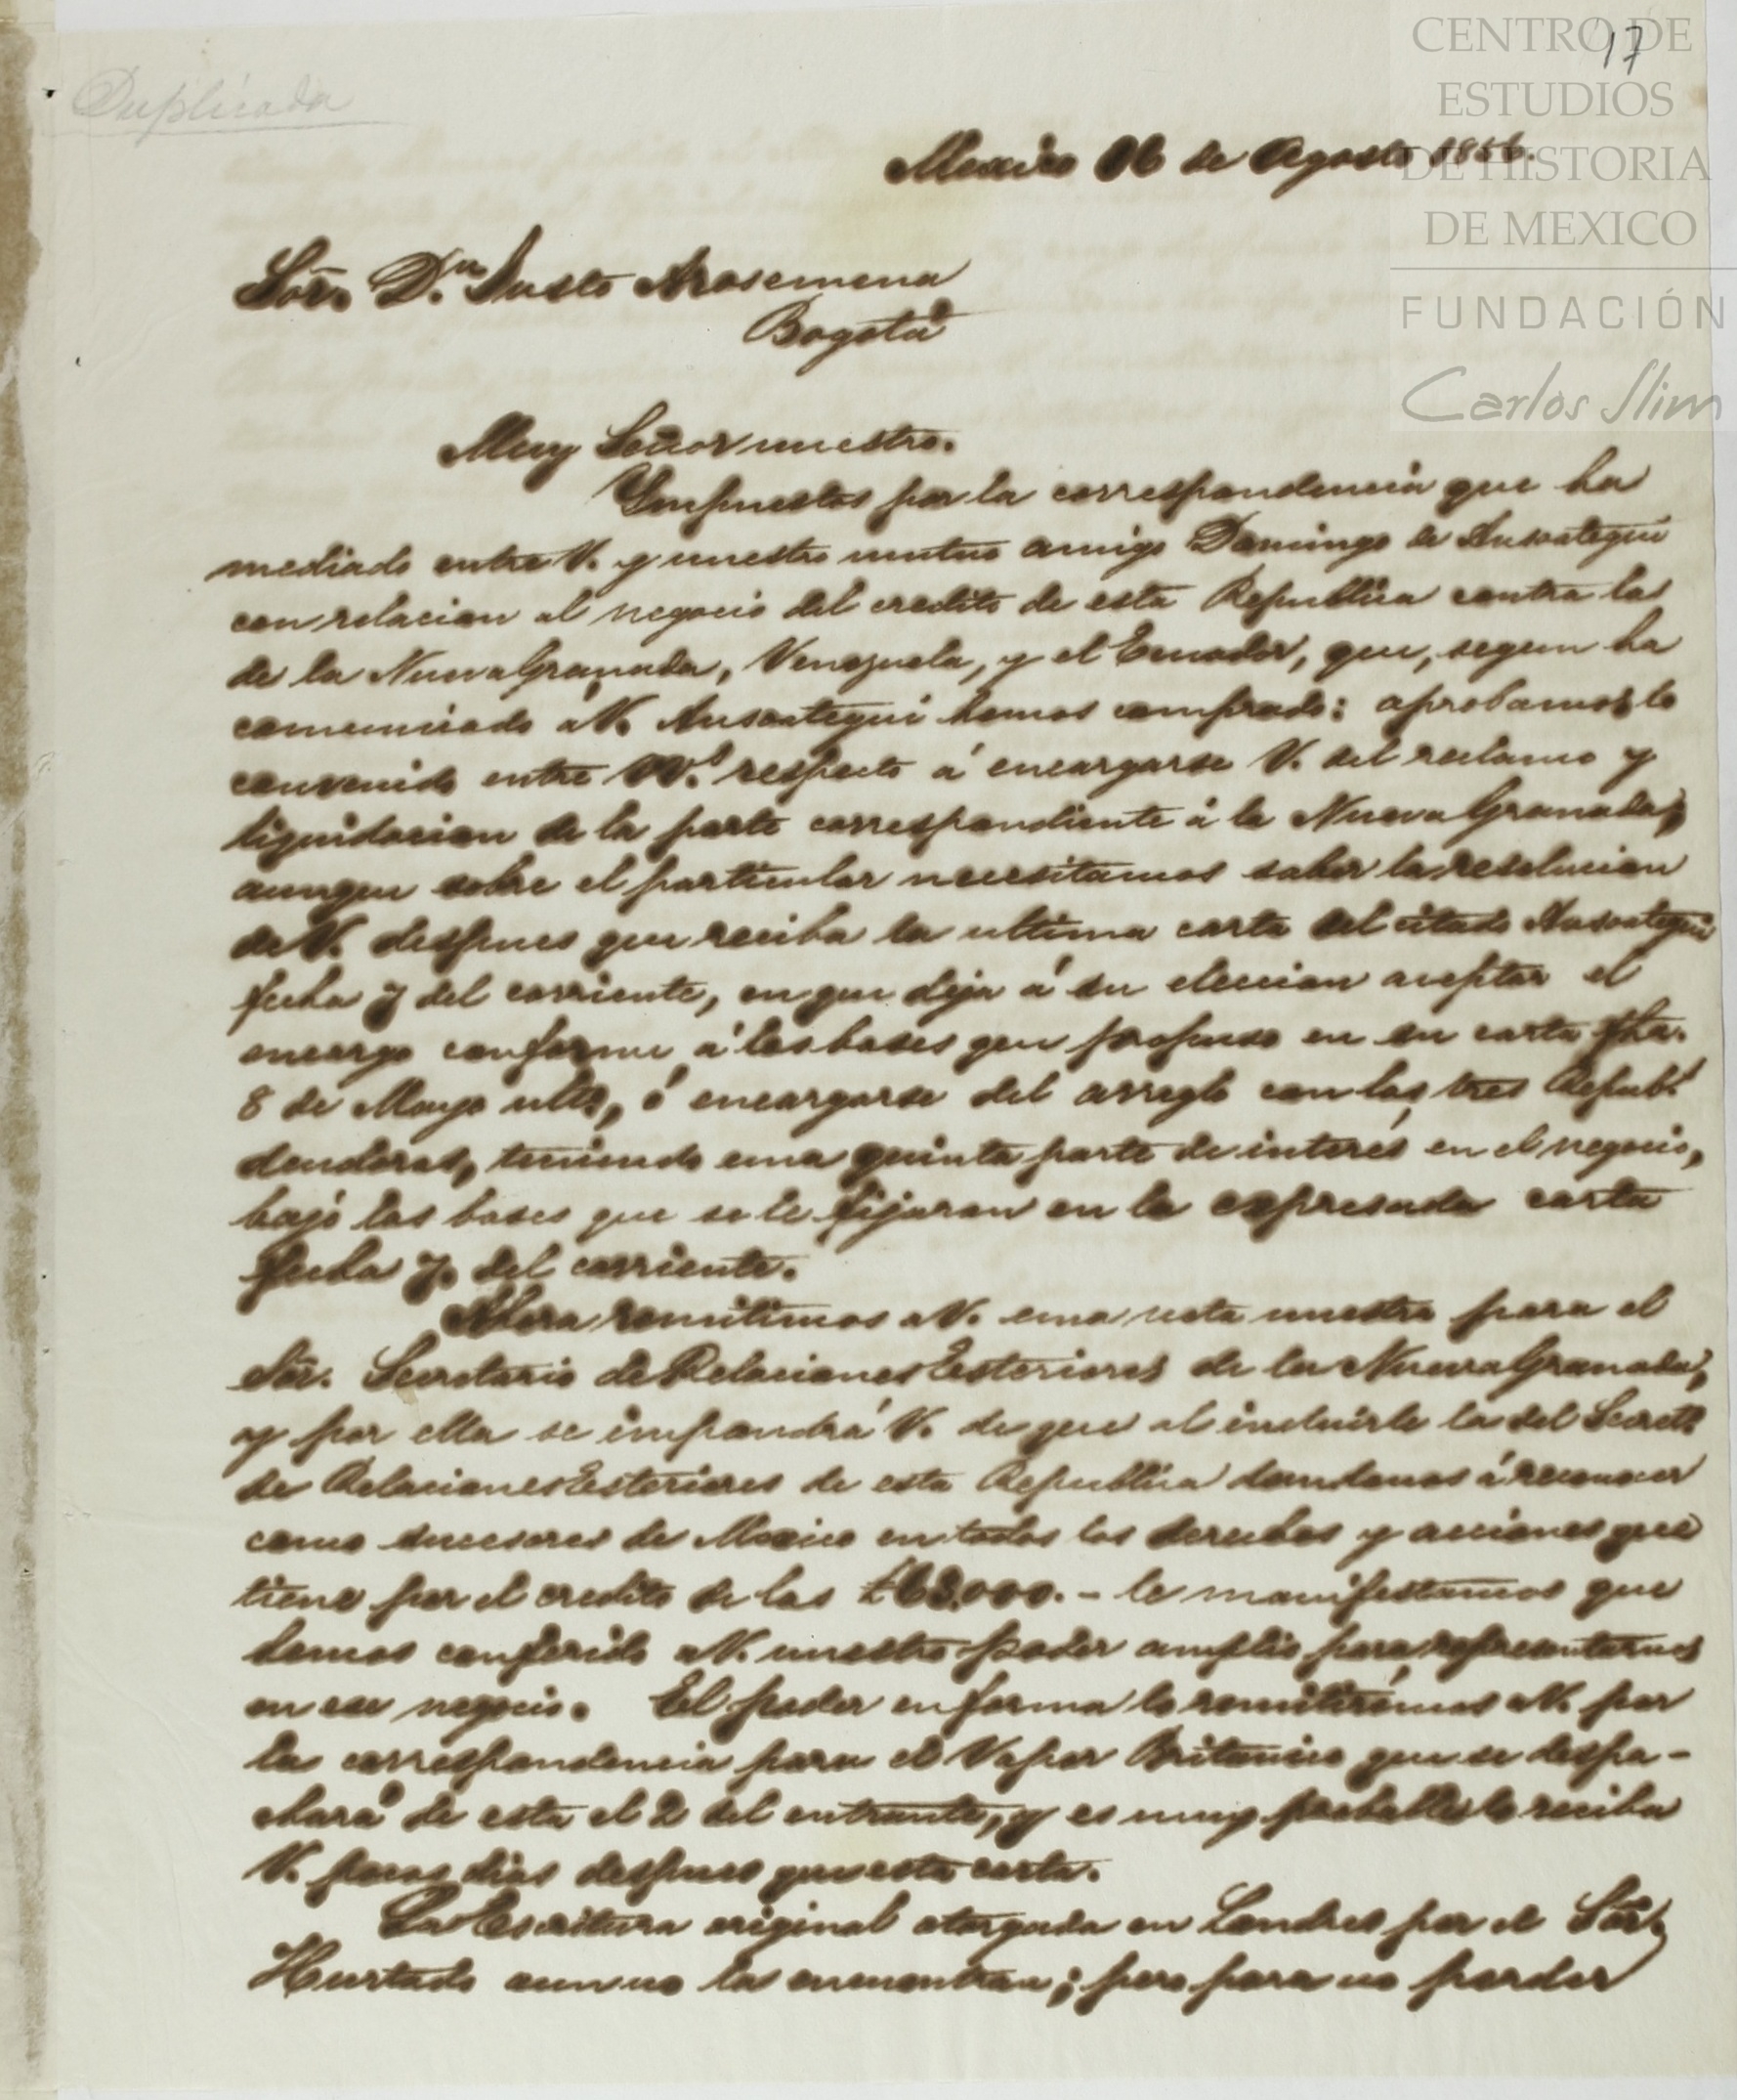 17
CENTRO DE
ESTUDIOS
DE HISTORIA
DE MEXICO
FUNDACIÓN
Carlos Slim
Duplicada
Mexico 16 de Agosto 1856.
Sor. Dn. Justo Arosemena
Bogotá
Muy Señor nuestro.
Impuestos por la correspondencia que ha
mediado entre V. y nuestro mutuo amigo Domingo de Ansoategui
con relacion al negocio del credito de esta Republica contra las
de la Nueva Granada, Venezuela, y el Ecuador, que, segun ha
comunicado a V. Ansoategui hemos comprado: aprobamos lo
convenido entre VV.s respecto á encargarse V. del reclamo y
liquidacion de la parte correspondiente á la Nueva Granada,
aunque sobre el particular necesitamos saber la resolucion
de V. despues que reciba la ultima carta del citado Ansoategui
fecha 7 del corriente, en que deja á su eleccion aceptar el
encargo conforme á las bases que propuso en su carta fha.
8 de Mayo ulto, ó encargarse del arreglo con las tres Repub.s
deudoras, teniendo una quinta parte de interés en el negocio,
bajo las bases que se le fijaron en la expresada carta
fecha 7. del corriente.
Ahora remitimos a V. una nota nuestra para el
Sor. Secretario de Relaciones Esteriores de la Nueva Granada,
y por ella se impondrá V. de que al incluirle la del Secreto
de Relaciones Esteriores de esta Republica dandonos á reconocer
como sucesores de Mexico en todos los derechos y acciones que
tiene por el credito de las £63.000. - le manifestamos que
hemos conferido a V. nuestro poder amplio para representarnos
en ese negocio. El poder en forma lo remitirémos a V. por
la correspondencia para el Vapor Britanico que se despa-
chará de esta el 2 del entrante, y es muy probable lo reciba
V. pocos dias despues que esta carta.
La Escritura original otorgada en Londres por el Sor.
Hurtado aun no la encuentran; pero para no perder